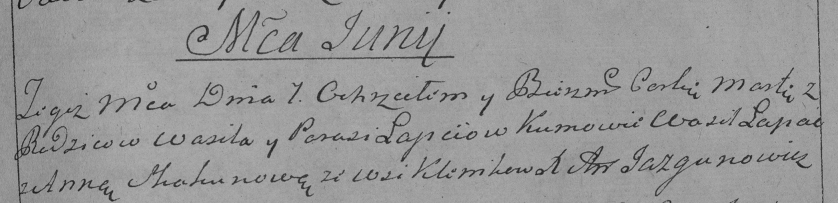 Mča Junij
Tegoż Mca Dnia 7. Ochrzciłem y Bierzm Corkę Martę z
Rodzicow Wasila y Parasi Łapciow Kumowie Wasil Łapać
z Anną ze wsi X An Jazgunowicz